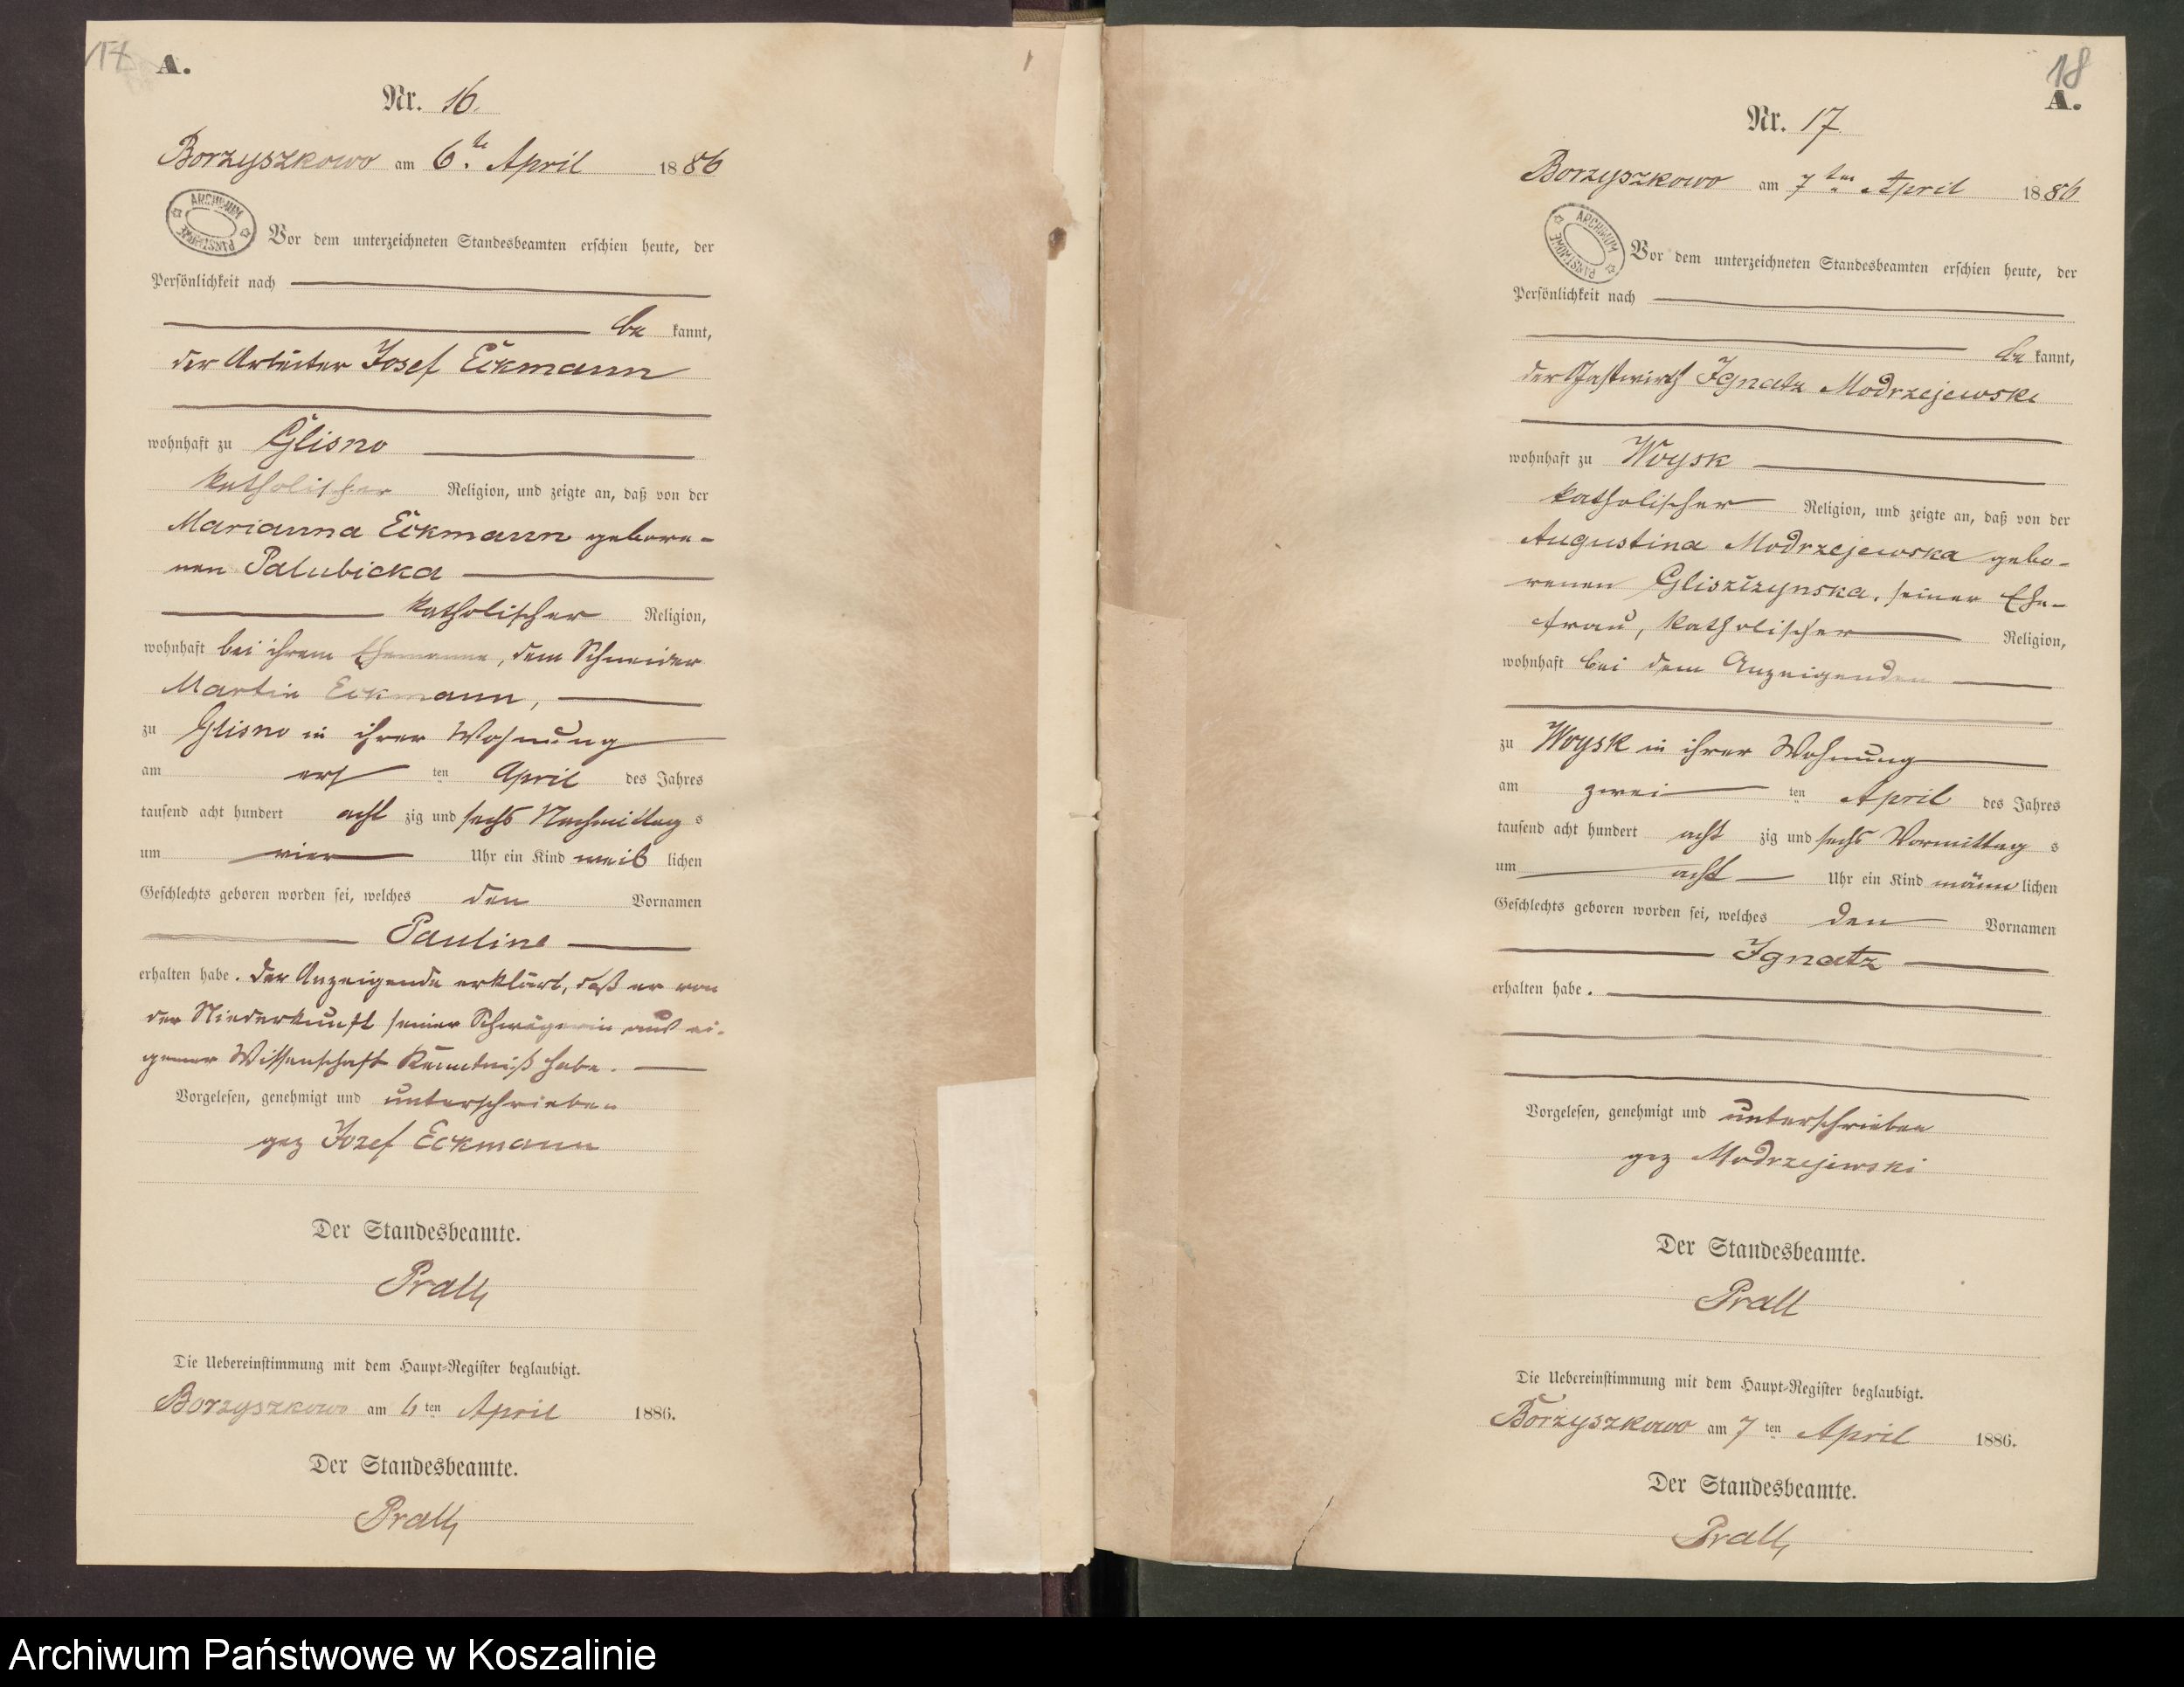 17
A.
Nr. 16.
Borzyszkowo am 6.te April 1886
ARCHIWUM PAŃSTWOWE
Vor dem unterzeichneten Standesbeamten erschien heute, der
Persönlichkeit nach
be kannt,
der Arbeiter Josef Eckmann
wohnhaft zu Glisno
katholischer Religion, und zeigte an, daß von der
Marianna Eckmann gebore-
nen Palubicka
katholischer Religion,
wohnhaft bei ihrem Ehemanne, dem Schneider
Martin Eckmann,
zu Glisno in ihrer Wohnung
am ers ten April des Jahres
tausend acht hundert acht zig und sechs Nachmittag s
um vier Uhr ein Kind weib lichen
Geschlechts geboren worden sei, welches den Vornamen
Pauline
erhalten habe. Der Anzeigende erklärt, daß er von
der Niederkunft seiner Schwägerin aus ei-
gener Wissenschaft Kenntniß habe.
Vorgelesen, genehmigt und unterschrieben
gez Jozef Eckmann
Der Standesbeamte.
Prall
Die Uebereinstimmung mit dem Haupt-Register beglaubigt.
Borzyszkowo am 6 ten April 1886.
Der Standesbeamte.
Prall
18
A.
Nr. 17
Borzyszkowo am 7ten April 1886
ARCHIWUM PAŃSTWOWE
Vor dem unterzeichneten Standesbeamten erschien heute, der
Persönlichkeit nach
be kannt,
der Gastwirth Ignatz Modrzejewski
wohnhaft zu Woysk
katholischer Religion, und zeigte an, daß von der
Augustina Modrzejewska gebo-
renen Gliszczynska, seiner Ehe-
frau, katholischer Religion,
wohnhaft bei dem Anzeigenden
zu Woysk in ihrer Wohnung
am zwei ten April des Jahres
tausend acht hundert acht zig und sechs Vormittag s
um acht Uhr ein Kind männ lichen
Geschlechts geboren worden sei, welches den Vornamen
Ignatz
erhalten habe.
Vorgelesen, genehmigt und unterschrieben
gez Modrzejewski
Der Standesbeamte.
Prall
Die Uebereinstimmung mit dem Haupt-Register beglaubigt.
Borzyszkowo am 7 ten April 1886.
Der Standesbeamte.
Prall
Archiwum Państwowe w Koszalinie